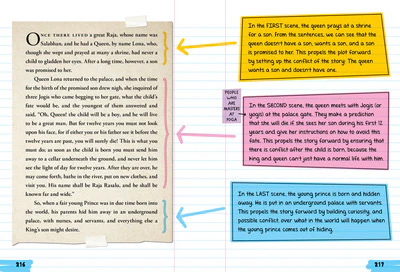 ONCE THERE LIVED a great Raja, whose name was
Salabhan, and he had a Queen, by name Lona, who,
though she wept and prayed at many a shrine, had never a
child to gladden her eyes. After a long time, however, a son
was promised to her.
Queen Lona returned to the palace, and when the time
for the birth of the promised son drew nigh, she inquired of
three Jogis who came begging to her gate, what the child's
fate would be, and the youngest of them answered and
said, "Oh, Queen! the child will be a boy, and he will live
to be a great man. But for twelve years you must not look
upon his face, for if either you or his father see it before the
twelve years are past, you will surely die! This is what you
must do; as soon as the child is born you must send him
away to a cellar underneath the ground, and never let him
see the light of day for twelve years. After they are over, he
may come forth, bathe in the river, put on new clothes, and
visit you. His name shall be Raja Rasalu, and he shall be
known far and wide."
So, when a fair young Prince was in due time born into
the world, his parents hid him away in an underground
palace, with nurses, and servants, and everything else a
King's son might desire.
216
In the FIRST scene, the queen prays at a shrine
for a son. From the sentences, we can see that the
queen doesn't have a son, wants a son, and a son
is promised to her. This propels the plot forward
by setting up the conflict of the story: The queen
wants a son and doesn't have one.
PEOPLE
WHO
ARE
MASTERS
AT
YOGA
In the SECOND scene, the queen meets with Jogis (or
yogis) at the palace gate. They make a prediction
that she will die if she sees her son during his first 12
years and give her instructions on how to avoid this
fate. This propels the story forward by ensuring that
there is conflict after the child is born, because the
king and queen can't just have a normal life with him.
In the LAST scene, the young prince is born and hidden
away. He is put in an underground palace with servants.
This propels the story forward by building curiosity, and
possible conflict over what in the world will happen when
the young prince comes out of hiding.
217